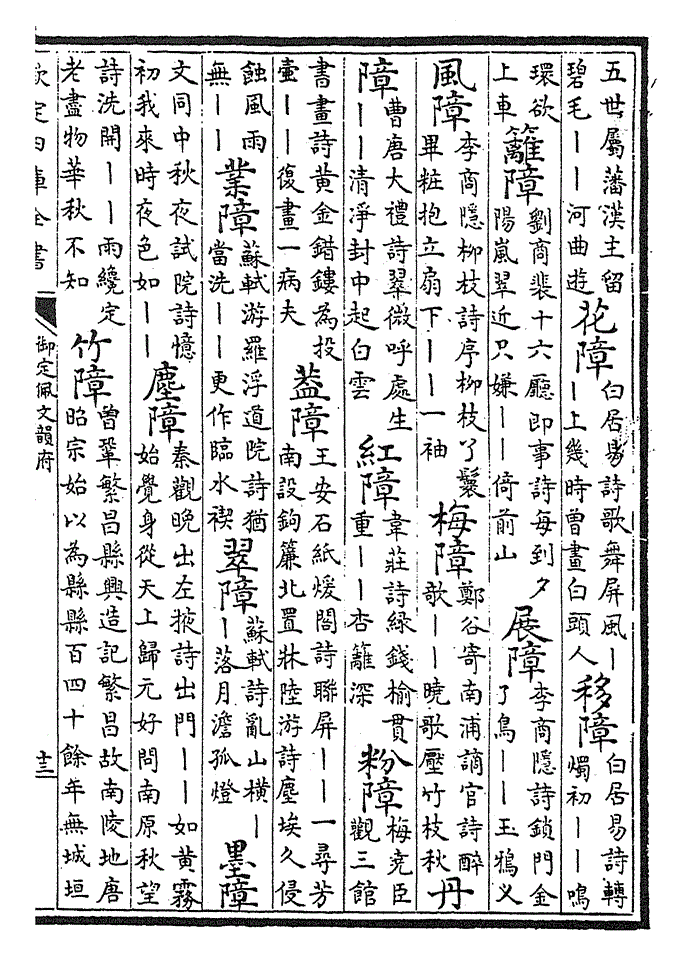 五世屬藩漢主留碧毛丨丨河曲遊花障白居易詩歌舞屏風丨丨上幾時曾畫白頭人移障白居易詩轉燭初丨丨鳴
環欲上車籬障劉商裴十六廳即事詩每到夕陽嵐翠近只嫌丨丨倚前山展障李商隱詩鎖門金了鳥丨丨玉鴉义
風障李商隱柳枝詩序柳枝丫鬟畢粧抱立扇下丨丨一袖梅障鄭谷寄南浦謫官詩醉歌丨丨曉歌壓竹枝秋丹
障曹唐大禮詩翠微呼處生丨丨清凈封中起白雲紅障韋莊詩綠錢榆貫重丨丨杏籬深粉障梅堯臣觀三館
書畫詩黄金錯鏤為投壷丨丨復畫一病夫葢障王安石紙煖閣詩聯屏丨丨一尋芳南設鉤簾北置牀陸游詩塵埃久侵
蝕風雨無丨丨業障蘇軾游羅浮道院詩猶當洗丨丨更作臨水禊翠障蘇軾詩亂山横丨丨落月澹孤燈墨障
文同中秋夜試院詩憶初我來時夜色如丨丨塵障秦觀晚出左掖詩出門丨丨如黄霧始覺身從天上歸元好問南原秋望
詩洗開丨丨雨纔定老盡物華秋不知竹障曾鞏繁昌縣興造記繁昌故南陵地唐昭宗始以為縣縣百四十餘年無城垣
欽定四庫全書
御定佩文韻府
十三